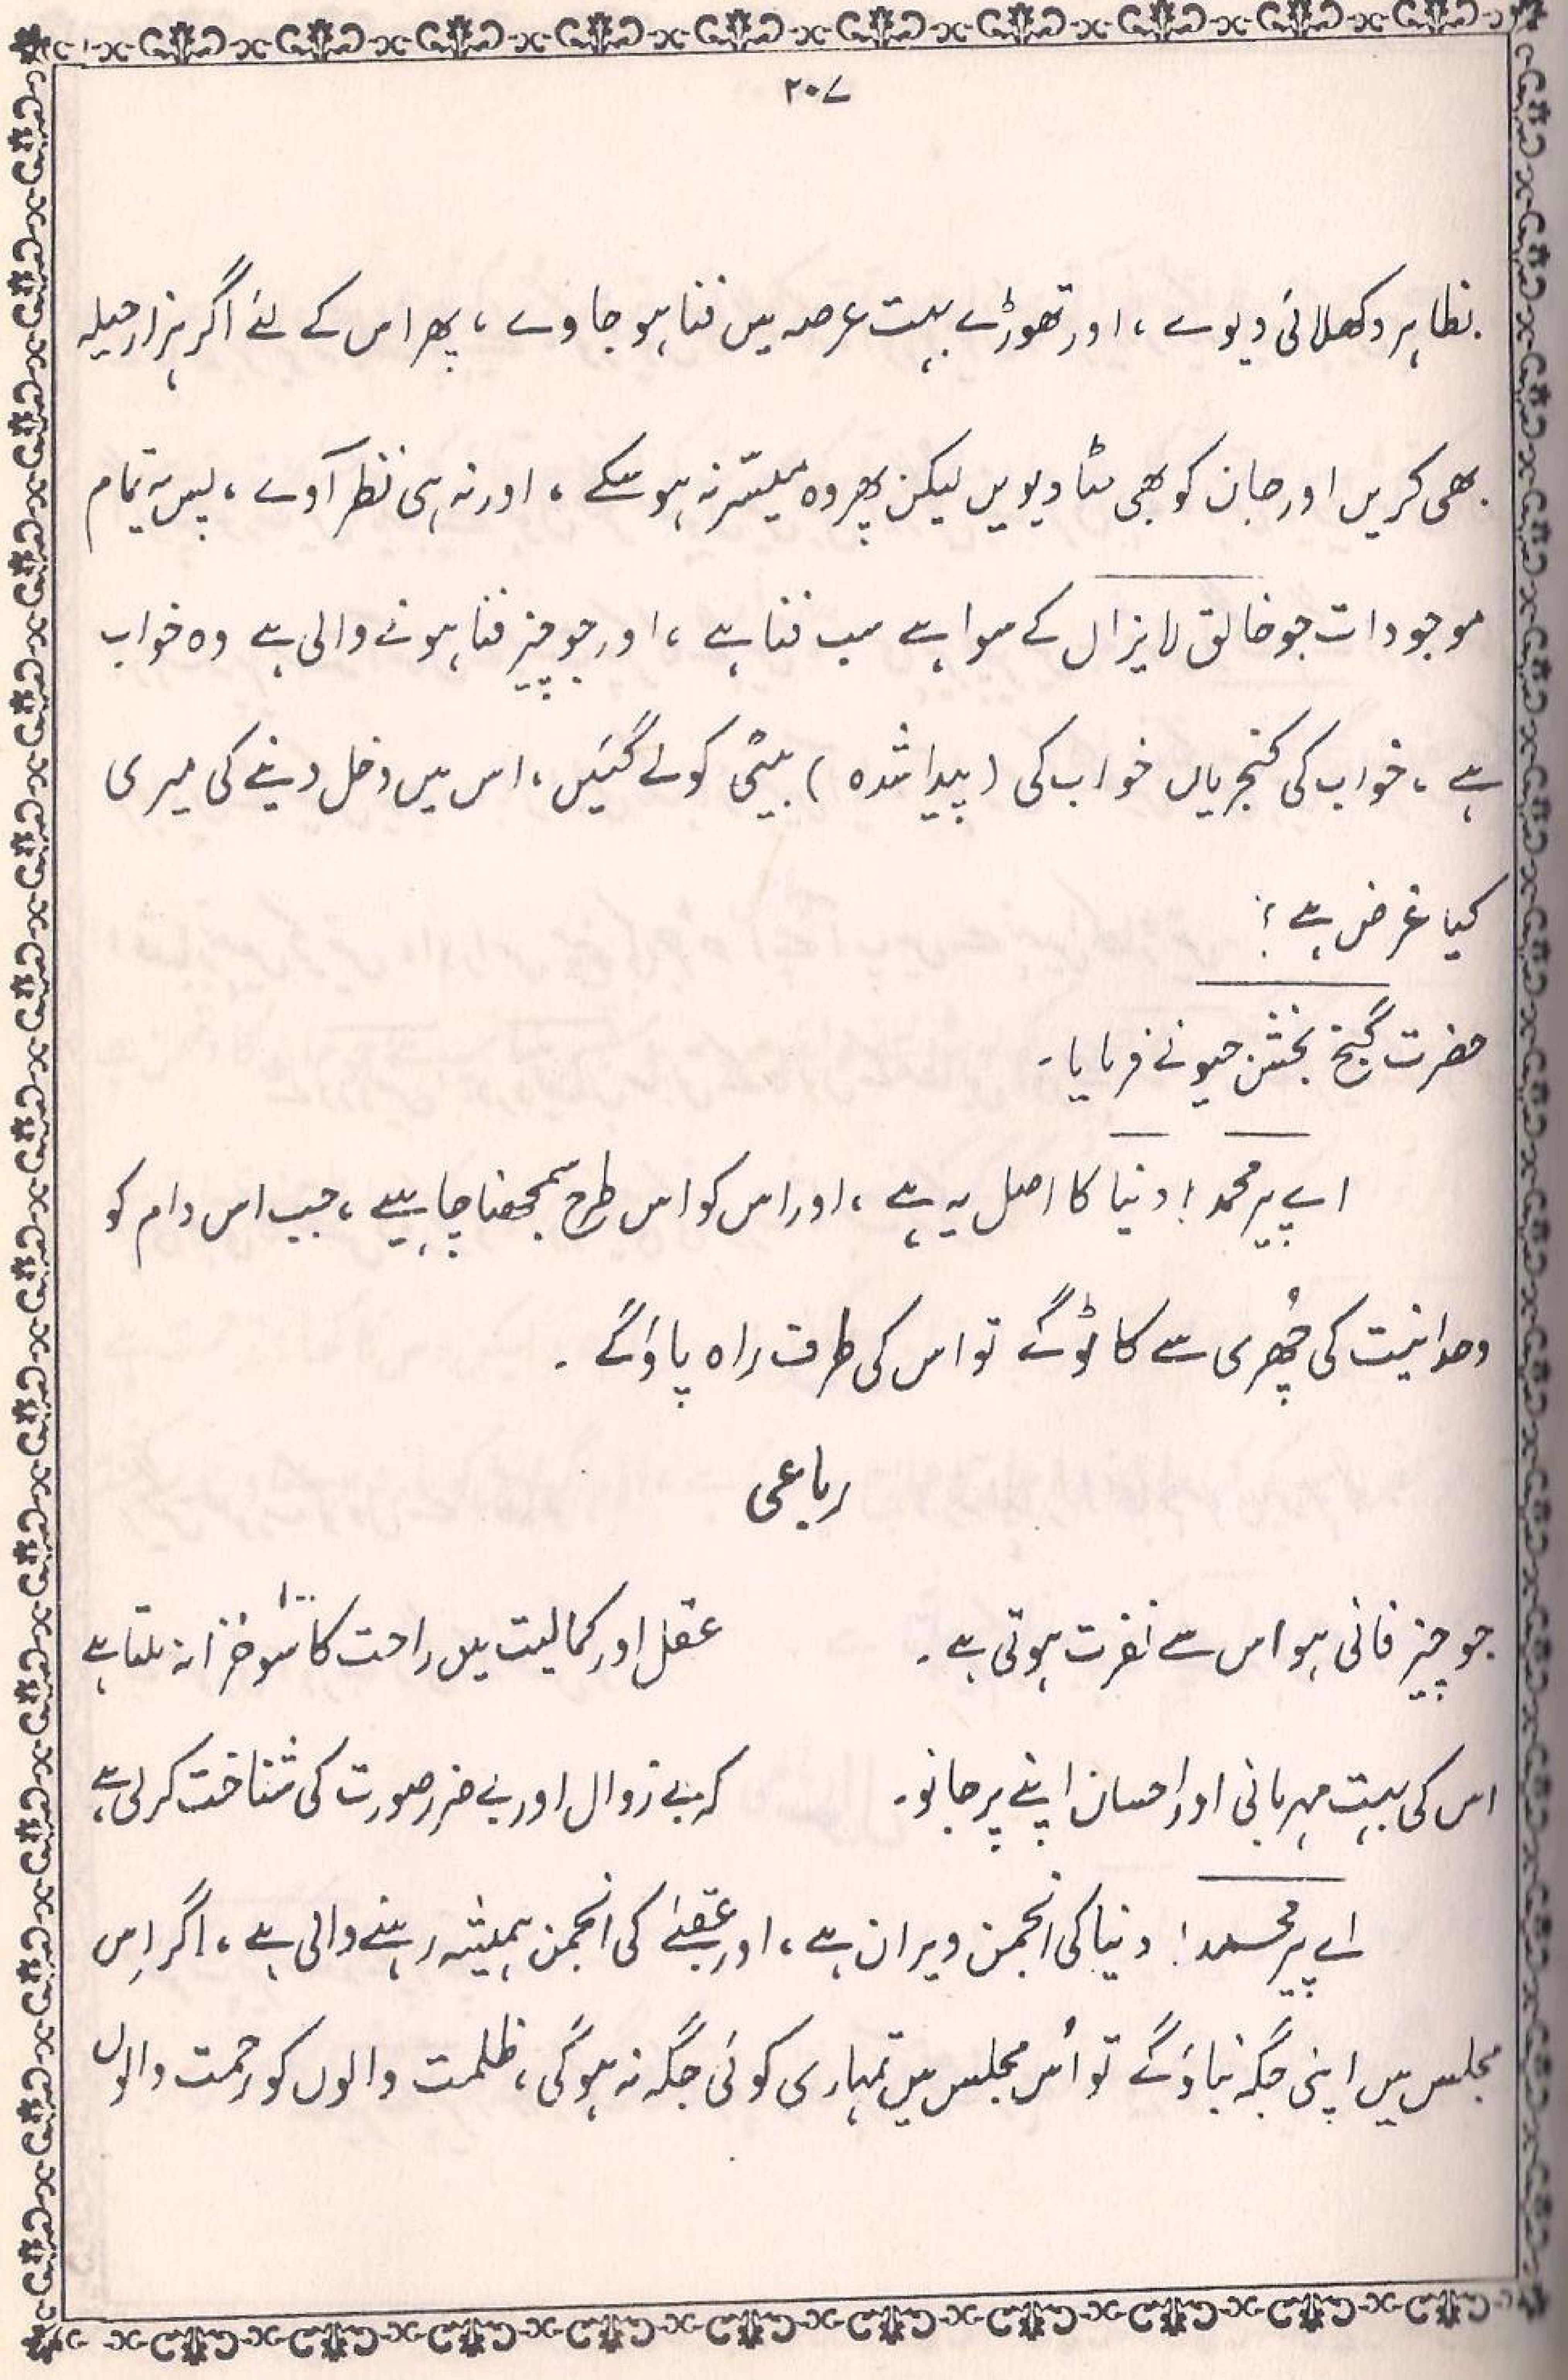 ۲۰۷
بظاہر دکھلائی دیوے ، اور تھوڑے بہت عرصہ میں فنا ہو جاوے ، پھر اس کے لئے اگر ہزار حیلہ
بھی کریں اور جان کو بھی مٹا دیویں لیکن پھر وہ میسّر نہ ہو سکے ، اور نہ ہی نظر آوے ، پس یہ تمام
موجودات جو خالق لایزال کے سوا ہے سب فنا ہے ، اور جو چیز فنا ہونے والی ہے وہ خواب
ہے ، خواب کی کنجریاں خواب کی (پیدا شدہ) بیٹی کو لے گئیں ، اس میں دخل دینے کی میری
کیا غرض ہے ؟
حضرت گنج بخش جیو نے فرمایا ۔
اے پیر محمد ! دنیا کا اصل یہ ہے ، اور اس کو اس طرح سمجھنا چاہیے ، جب اس دام کو
وحدانیت کی چُھری سے کاٹو گے تو اس کی طرف راہ پاؤ گے ۔
رباعی
جو چیز فانی ہو اس سے نفرت ہوتی ہے ۔ عقل اور کمالیت میں راحت کا سو خزانہ ملتا ہے
اس کی بہت مہربانی اور احسان اپنے پر جانو ۔ کہ بے زوال اور بے ضرر صورت کی شناخت کر لی ہے
اے پیر محمد ! دنیا کی انجمن ویران ہے ، اور عقبےٰ کی انجمن ہمیشہ رہنے والی ہے ، اگر اِس
مجلس میں اپنی جگہ بناؤ گے تو اُس مجلس میں تمہاری کوئی جگہ نہ ہو گی ، ظلمت والوں کو رحمت والوں